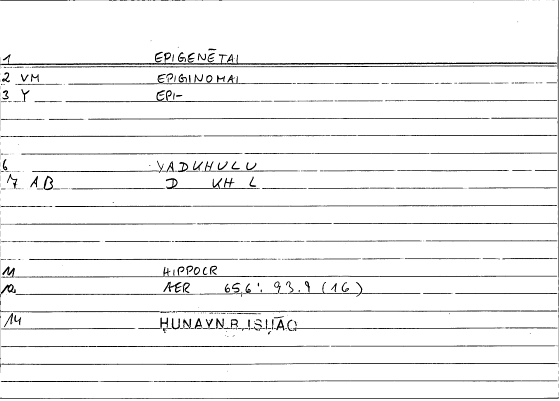 1 EPIGENĒTAI
2 VM EPIGINOMAI
3 Y EPI-
6 YADKHULU
7 AB D KH L
11 HIPPOCR
12 AER 65,6 : 93.9 (16)
14 ḤUNAYN B. ISḤĀQ